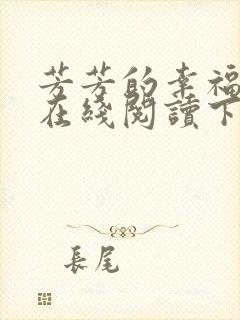 芳芳的幸福
在綫閱讀下
長尾